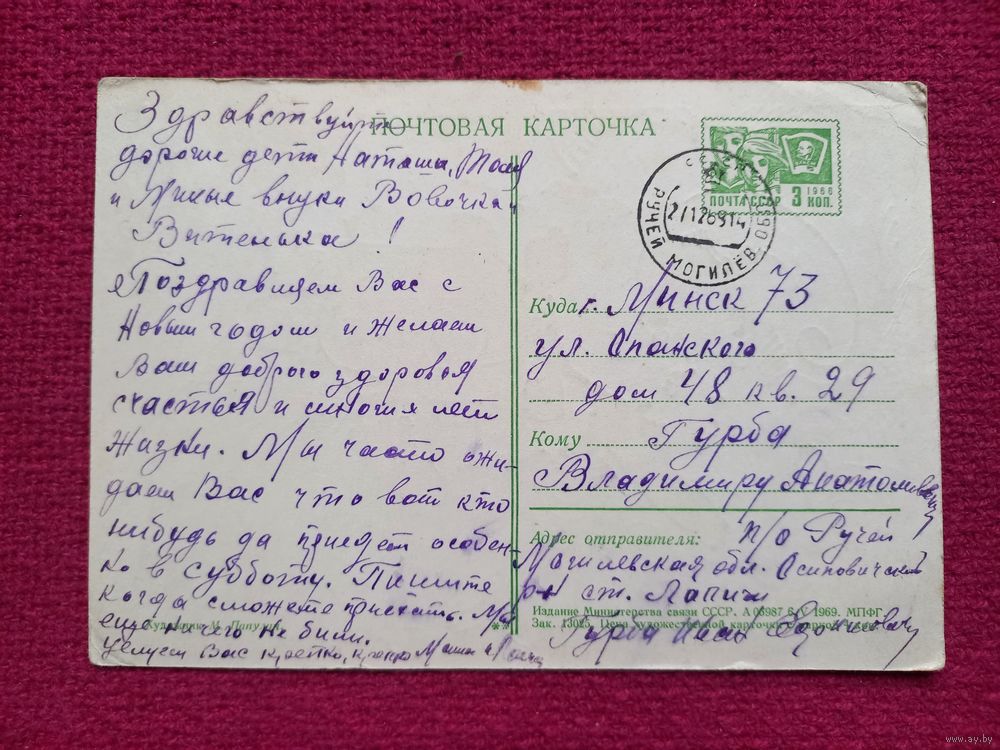 Здравствуйте
дорогие дети Наташа, Толя
и Милые внуки Вовочка и
Витенька!
Поздравляем Вас с
Новым годом и желаем
Вам доброго здоровья
счастья и многих лет
жизни. Мы часто ожи-
даем Вас что вот кто
нибудь да приедет особен-
но в субботу. Пишите
когда сможете приехать. Мы
еще ничего не били.
целуем Вас крепко, крепко Мама и
Художник М. Папулин
ПОЧТОВАЯ КАРТОЧКА
ПОЧТА СССР 3 КОП.
1966
РУЧЕЙ МОГИЛЁВ. ОБЛ.
Куда г. Минск 73
ул. Опанского
дом 48 кв. 29
Кому Гурба
Владимиру Анатольевичу
Адрес отправителя: п/о Ручей
Могилевская обл. Осиповичский
р-н ст. Лапичи
Издание Министерства связи СССР. А 08987 6/V 1969. МПФГ.
Зак. 13025. Цена художественной карточки с маркой 4 коп.
Гурба Иван
**
www.ay.by